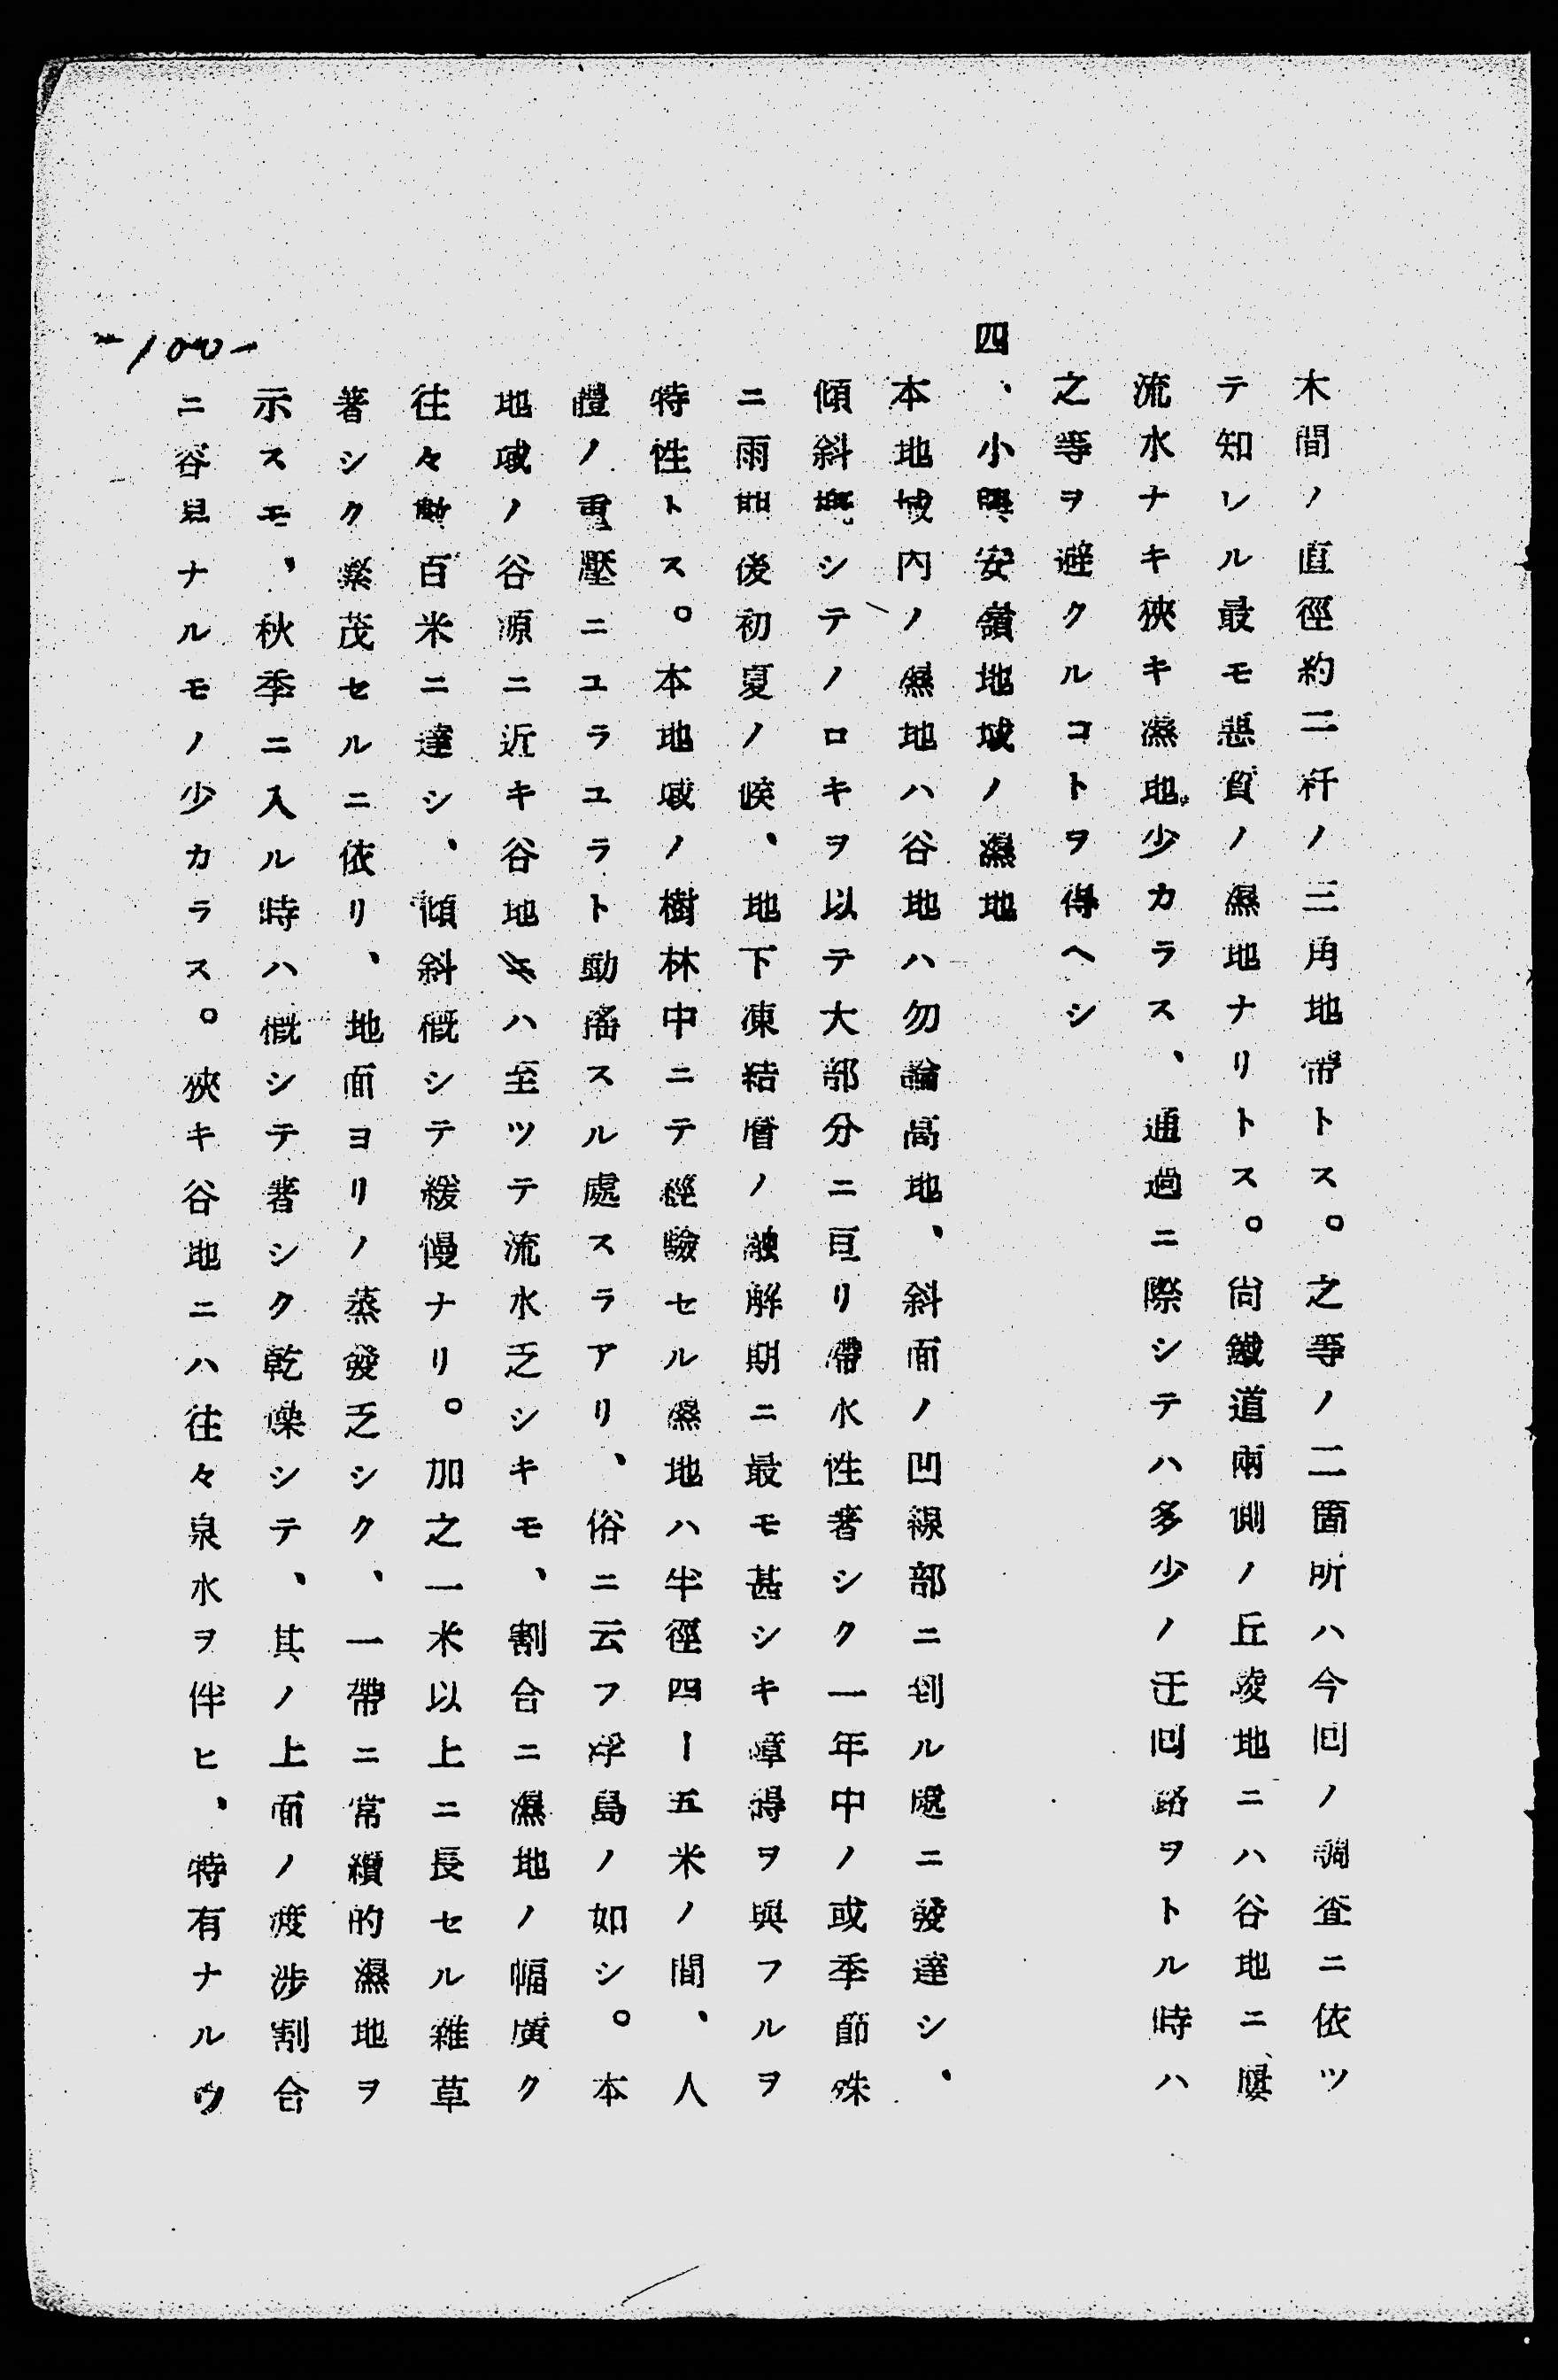 木間ノ直徑約二粁ノ三角地帶トス。之等ノ二箇所ハ今囘ノ調査ニ依ツ
テ知レル最モ惡質ノ濕地ナリトス。尙鐵道兩側ノ丘陵地ニハ谷地ニ、屢
流水ナキ狹キ濕地少カラス、通過ニ際シテハ多少ノ迂囘路ヲトル時ハ
之等ヲ避クルコトヲ得ヘシ
四、小興安嶺地域ノ濕地
本地域內ノ濕地ハ谷地ハ勿論高地、斜面ノ凹線部ニ到ル處ニ發達シ、
傾斜概シテノロキヲ以テ大部分ニ亘リ帶水性著シク一年中ノ或季節殊
ニ雨期後初夏ノ候、地下凍結層ノ融解期ニ最モ甚シキ障碍ヲ與フルヲ
特性トス。本地域ノ樹林中ニテ經驗セル濕地ハ半徑四ー五米ノ間、人
體ノ重壓ニユラユラト動搖スル處スラアリ、俗ニ云フ浮島ノ如シ。本
地域ノ谷源ニ近キ谷地ハ至ツテ流水乏シキモ、割合ニ濕地ノ幅廣ク
往々數百米ニ達シ、傾斜概シテ緩慢ナリ。加之一米以上ニ長セル雜草
著シク繁茂セルニ依リ、地面ヨリノ蒸發乏シク、一帶ニ常續的濕地ヲ
示スモ、秋季ニ入ル時ハ概シテ著シク乾燥シテ、其ノ上面ノ渡涉割合
ニ容易ナルモノ少カラス。狹キ谷地ニハ往々泉水ヲ伴ヒ、特有ナルウ
-100-